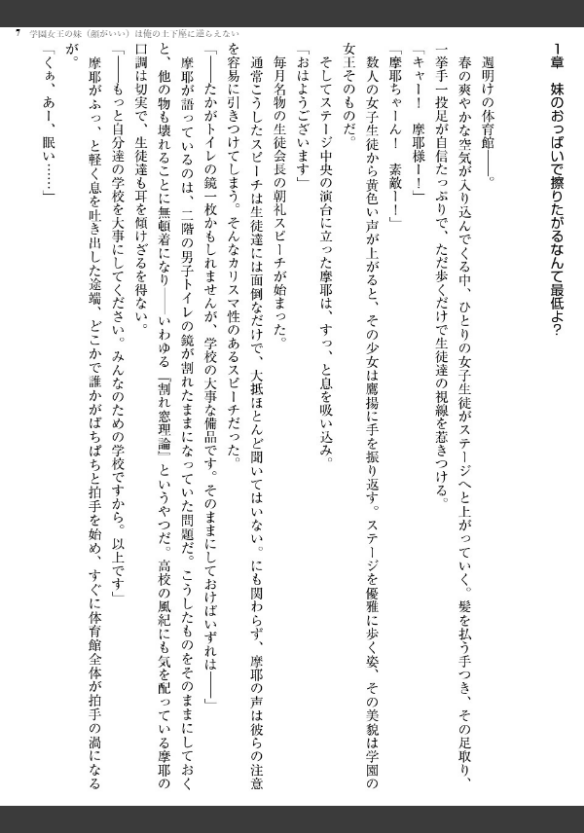 7 学園女王の妹（顔がいい）は俺の土下座に逆らえない
週明けの体育館――。
春の爽やかな空気が入り込んでくる中、ひとりの女子生徒がステージへと上がっていく。髪を払う手つき、その足取り、
一挙手一投足が自信たっぷりで、ただ歩くだけで生徒達の視線を惹きつける。
「キャー！　摩耶様ー！」
「摩耶ちゃーん！　素敵ー！」
数人の女子生徒から黄色い声が上がると、その少女は鷹揚に手を振り返す。ステージを優雅に歩く姿、その美貌は学園の
女王そのものだ。
そしてステージ中央の演台に立った摩耶は、すっ、と息を吸い込み。
「おはようございます」
毎月名物の生徒会長の朝礼スピーチが始まった。
通常こうしたスピーチは生徒達には面倒なだけで、大抵ほとんど聞いてはいない。にも関わらず、摩耶の声は彼らの注意
を容易に引きつけてしまう。そんなカリスマ性のあるスピーチだった。
「――たかがトイレの鏡一枚かもしれませんが、学校の大事な備品です。そのままにしておけばいずれは――」
摩耶が語っているのは、二階の男子トイレの鏡が割れたままになっていた問題だ。こうしたものをそのままにしておく
と、他の物も壊れることに無頓着になり――いわゆる『割れ窓理論』というやつだ。高校の風紀にも気を配っている摩耶の
口調は切実で、生徒達も耳を傾けざるを得ない。
「――もっと自分達の学校を大事にしてください。みんなのための学校ですから。以上です」
摩耶がふっ、と軽く息を吐き出した途端、どこかで誰かがぱちぱちと拍手を始め、すぐに体育館全体が拍手の渦になる
が。
「くぁ、あー、眠い……」